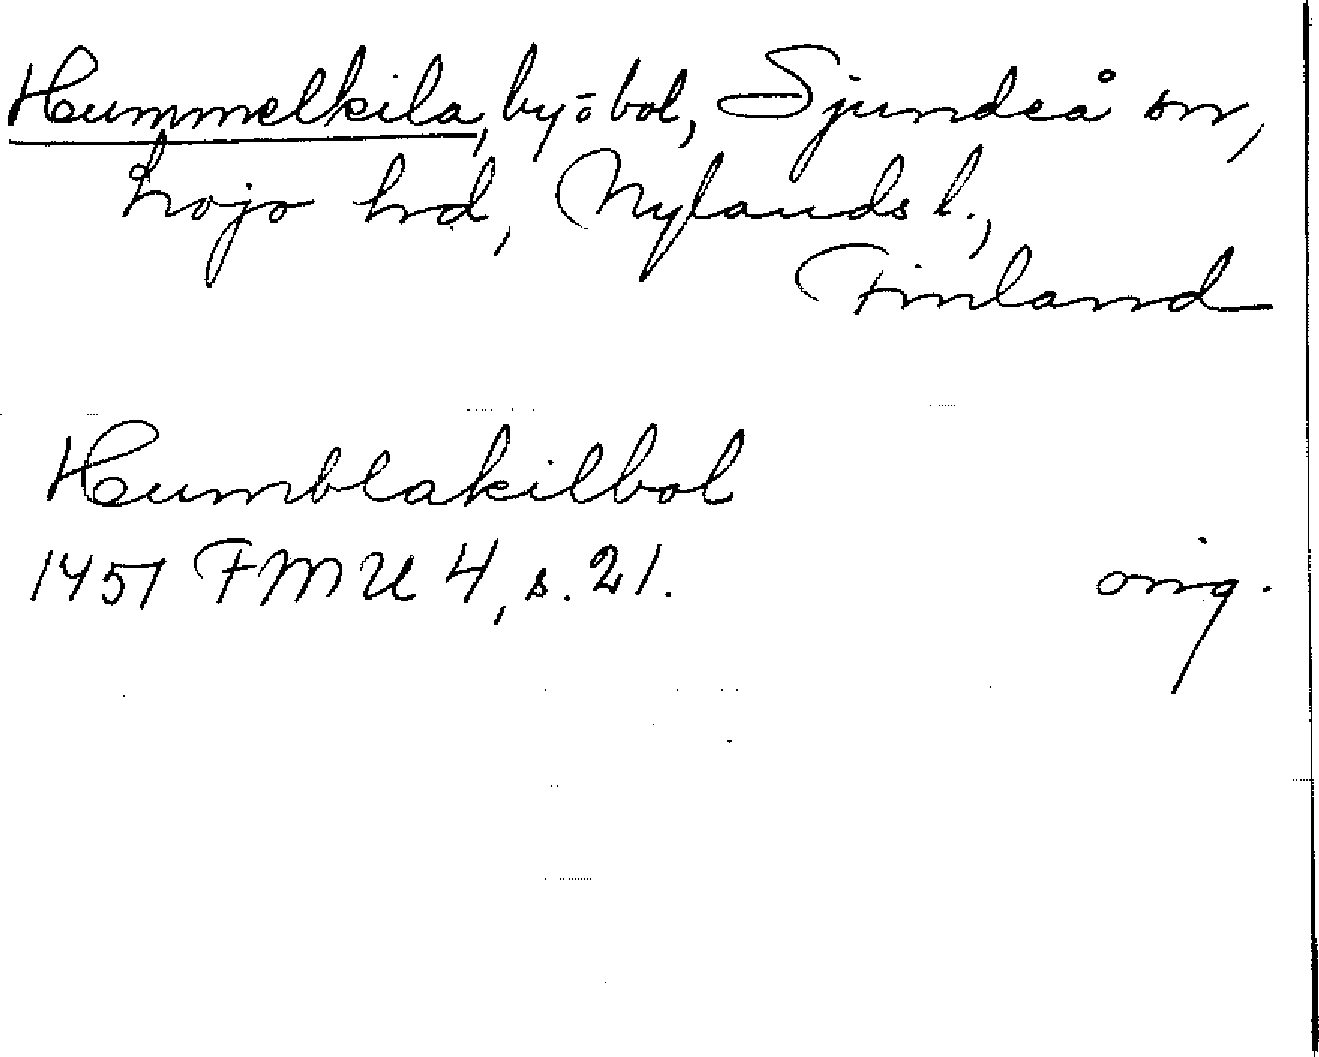 Hummelkila, by o bol, Sjundeå sn,
Lojo hrd, Nylands l.,
Finland
Humblakilbol
1451 FMU 4, s. 21.
orig.